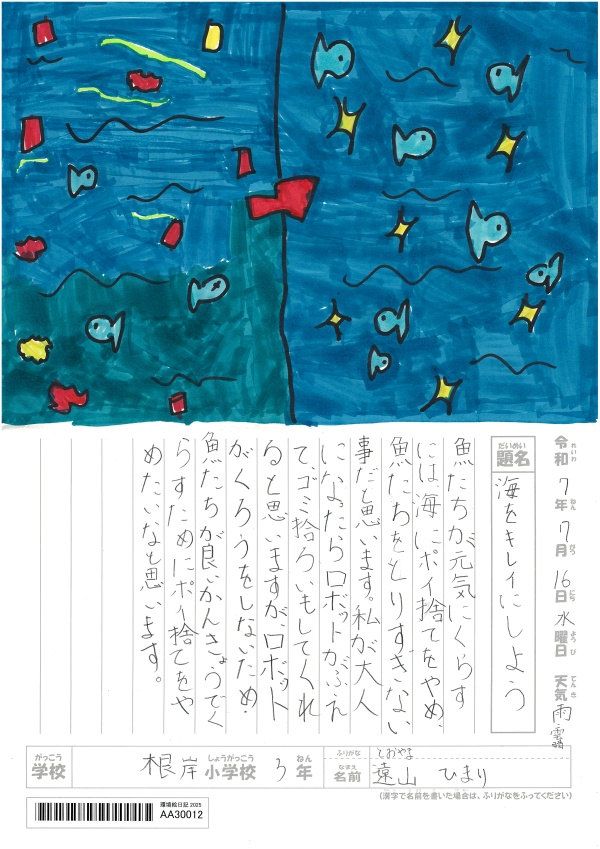 令和7年7月16日水曜日 天気雨・霧
れいわ ねん がつ にち ようび てんき
だいめい
題名 海をキレイにしよう
魚たちが元気にくらす
には、海にポイ捨てをやめ、
魚たちをとりすぎない
事だと思います。私が大人
になったらロボットがふえ
て、ゴミ拾ろいもしてくれ
ると思いますが、ロボット
がくろうをしないため・
魚たちが良いかんきょうでく
らすためにポイ捨てをや
めたいなと思います。
がっこう しょうがっこう ねん
学校 根岸小学校 3年
ふりがな とおやま
なまえ
名前 遠山 ひまり
(漢字で名前を書いた場合は、ふりがなをふってください)
環境絵日記 2025
AA30012